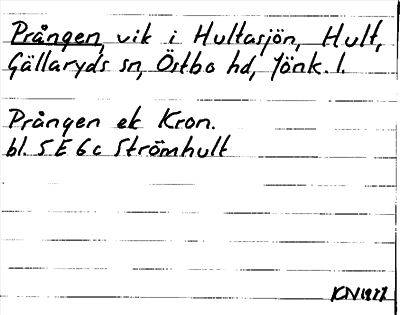 Prången, vik i Hultasjön, Hult,
Gällaryds sn, Östbo hd, Jönk. l.
Prången ek Kron.
bl. 5 E 6 c Strömhult
KN 1977